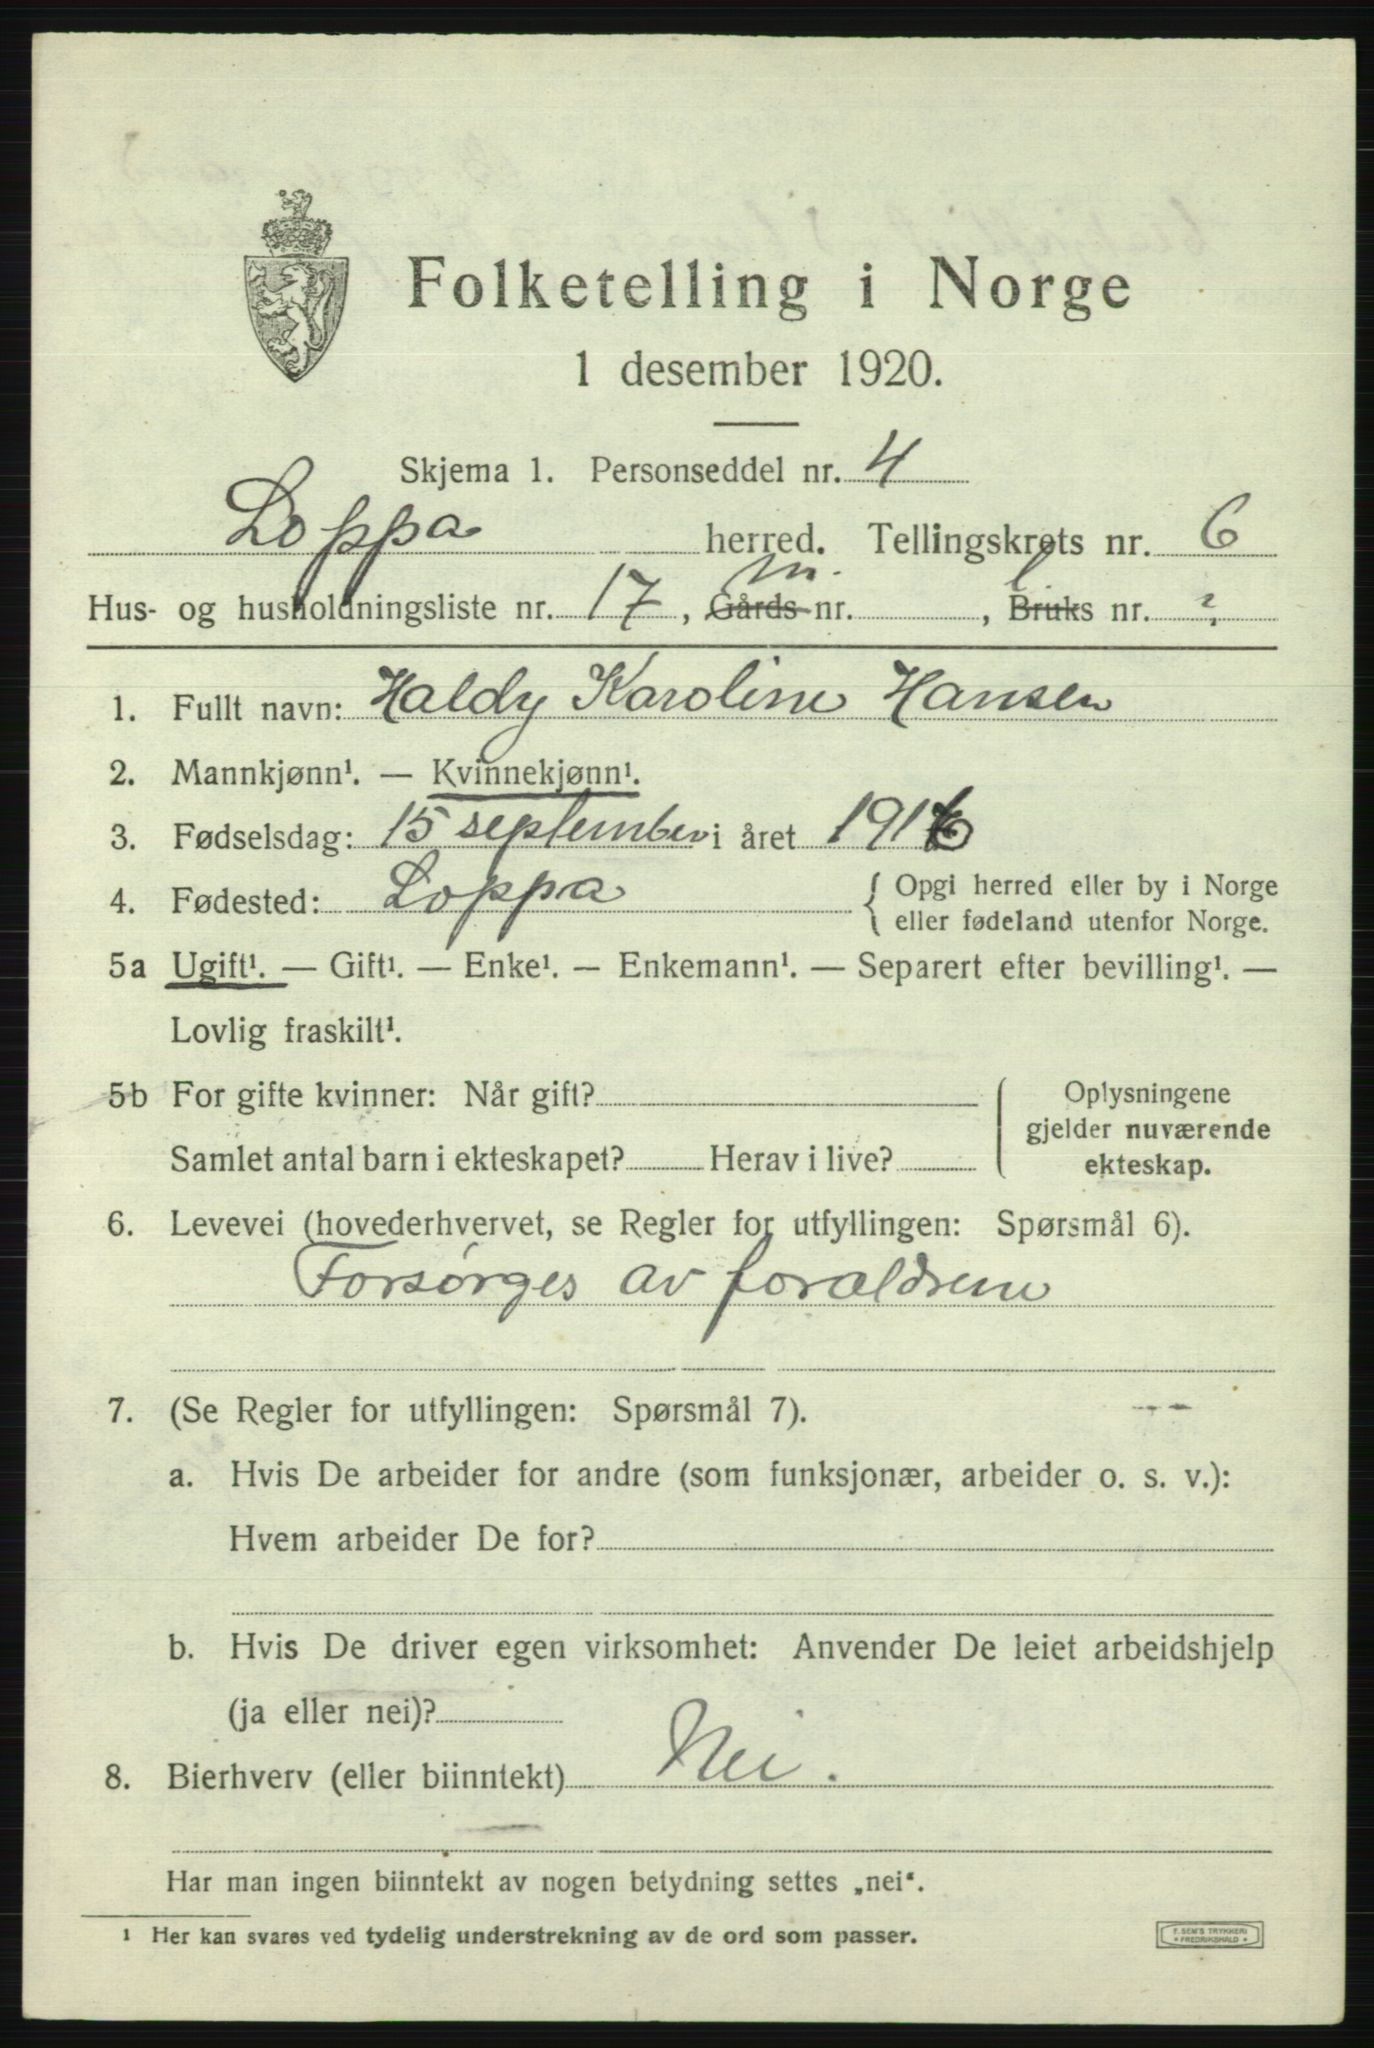 Folketelling i Norge
1 desember 1920.
Skjema 1. Personseddel nr. 4
Loppa herred. Tellingskrets nr. 6
Hus- og husholdningsliste nr. 17, Gårds m. nr. , Bruks l nr. ?
1. Fullt navn: Haldy Karoline Hansen
2. Mannkjønn¹. — Kvinnekjønn¹.
3. Fødselsdag: 15 september i året 1916
4. Fødested: Loppa { Opgi herred eller by i Norge
eller fødeland utenfor Norge.
5a Ugift¹. — Gift¹. — Enke¹. — Enkemann¹. — Separert efter bevilling¹. —
Lovlig fraskilt¹.
5b For gifte kvinner: Når gift? Oplysningene
gjelder nuværende
Samlet antal barn i ekteskapet? Herav i live? ekteskap.
6. Levevei (hovederhvervet, se Regler for utfyllingen: Spørsmål 6).
Forsørges av forældrene
7. (Se Regler for utfyllingen: Spørsmål 7).
a. Hvis De arbeider for andre (som funksjonær, arbeider o. s. v.):
Hvem arbeider De for?
b. Hvis De driver egen virksomhet: Anvender De leiet arbeidshjelp
(ja eller nei)?
8. Bierhverv (eller biinntekt) Nei.
Har man ingen biinntekt av nogen betydning settes „nei“.
¹ Her kan svares ved tydelig understrekning av de ord som passer.
F. SEM'S TRYKKERI
• FREDRIKSHALD •